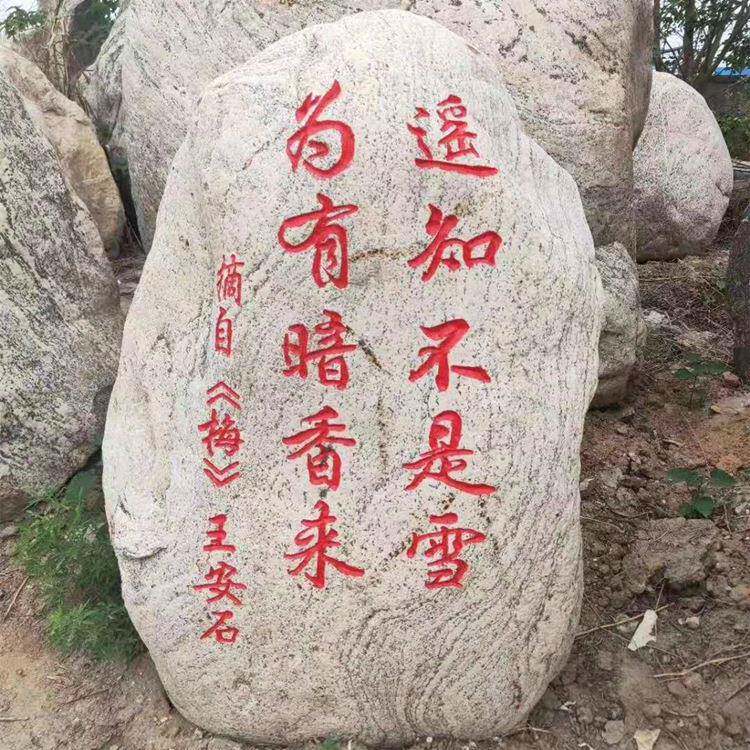 遥知不是雪
为有暗香来
摘自《梅》王安石